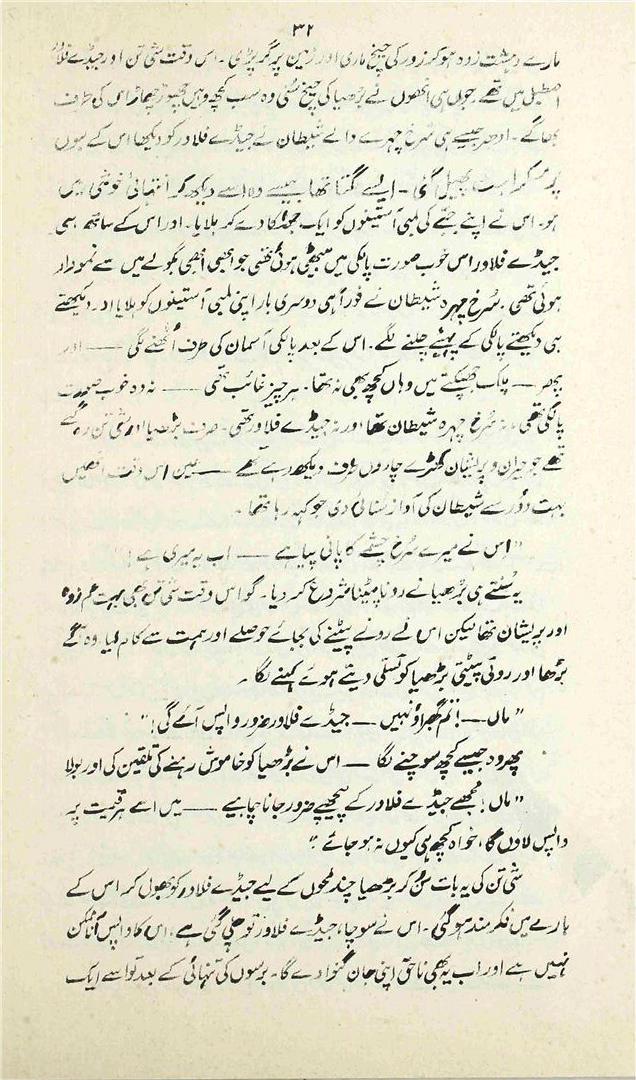 ۳۲
مارے دہشت زدہ ہو کر زور کی چیخ ماری اور زمین پر گر پڑی۔ اس وقت شی تن اور جیڈے فلاور
اصطبل میں تھے۔ جوں ہی انھوں نے بڑھیا کی چیخ سنی وہ سب کچھ وہیں چھوڑ چھاڑ اس کی طرف
بھاگے۔ ادھر جیسے ہی سُرخ چہرے والے شیطان نے جیڈے فلاور کو دیکھا اس کے ہونٹوں
پر مسکراہٹ پھیل گئی۔ ایسے لگتا تھا جیسے وہ اسے دیکھ کر انتہائی خوشی میں
ہو۔ اس نے اپنے جُبّے کی لمبی آستینوں کو ایک جھٹکا دے کر ہلایا۔ اور اس کے ساتھ ہی
جیڈے فلاور اس خوب صورت پالکی میں بیٹھی ہوئی تھی جو ابھی ابھی بگولے میں سے نمودار
ہوئی تھی۔ سُرخ چہرہ شیطان نے فوراً ہی دوسری بار اپنی لمبی آستینوں کو ہلایا اور دیکھتے
ہی دیکھتے پالکی کے پہیئے چلنے لگے۔ اس کے بعد پالکی آسمان کی طرف اُٹھنے لگی —— اور
پھر — پلک جھپکتے میں وہاں کچھ بھی نہ تھا۔ ہر چیز غائب تھی —— نہ وہ خوب صورت
پالکی تھی، نہ سُرخ چہرہ شیطان تھا اور نہ جیڈے فلاور تھی۔ صرف بڑھیا اور شی تن رہ گئے
تھے جو حیران و پریشان کھڑے چاروں طرف دیکھ رہے تھے —— عین اس وقت انھیں
بہت دُور سے شیطان کی آواز سنائی دی جو کہہ رہا تھا۔
"اس نے میرے سُرخ چشمے کا پانی پیا ہے —— اب یہ میری ہے!"
یہ سُنتے ہی بڑھیا نے رونا پیٹنا شروع کر دیا۔ گو اس وقت شی تن بھی بہت غم زدہ
اور پریشان تھا لیکن اس نے رونے پیٹنے کی بجائے حوصلے اور ہمت سے کام لیا وہ آگے
بڑھا اور روتی پیٹتی بڑھیا کو تسلی دیتے ہوئے کہنے لگا۔
"ماں —! تم گھبراؤ نہیں — جیڈے فلاور ضرور واپس آئے گی!"
پھر وہ جیسے کچھ سوچنے لگا — اس نے بڑھیا کو خاموش رہنے کی تلقین کی اور بولا
"ماں! مجھے جیڈے فلاور کے پیچھے ضرور جانا چاہیے —— میں اسے ہر قیمت پر
واپس لاؤں گا، خواہ کچھ ہی کیوں نہ ہو جائے۔"
شی تن کی یہ بات سُن کر بڑھیا چند لمحوں کے لیے جیڈے فلاور کو بھول کر اس کے
بارے میں فکر مند ہو گئی۔ اس نے سوچا، جیڈے فلاور تو چلی گئی ہے، اس کا واپس آنا ممکن
نہیں ہے اور اب یہ بھی ناحق اپنی جان گنوا دے گا۔ برسوں کی تنہائی کے بعد تو اسے ایک